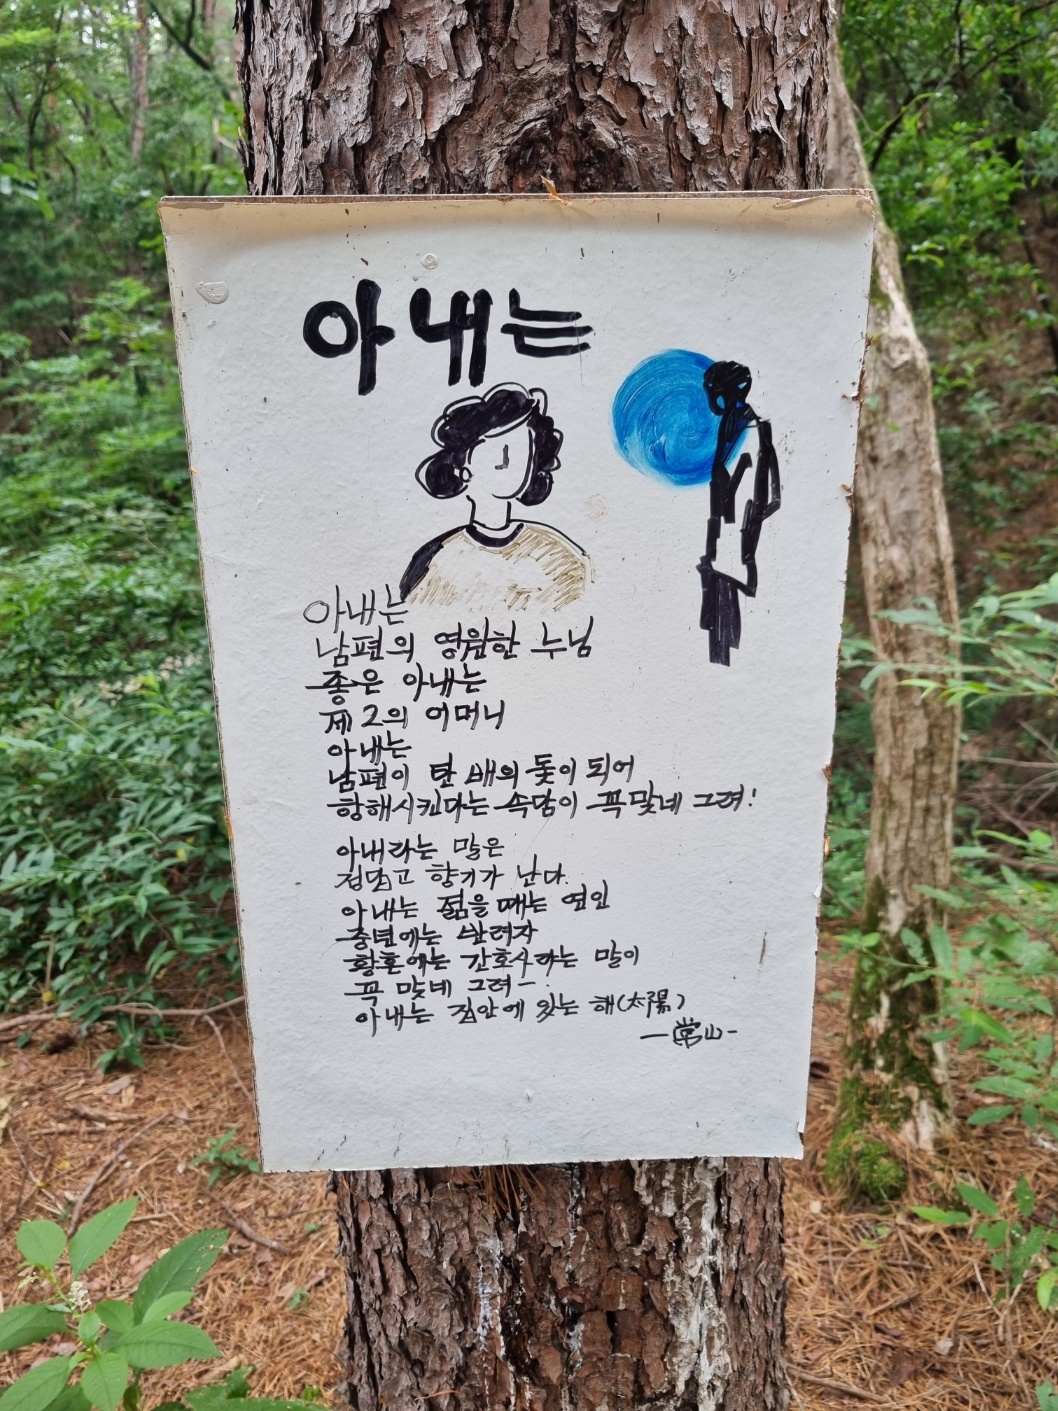 아내는
아내는
남편의 영원한 누님
좋은 아내는
제2의 어머니
아내는
남편이 탄 배의 돛이 되어
항해시킨다는 속담이 꼭 맞네 그려!
아내라는 말은
정답고 향기가 난다.
아내는 젊을 때는 연인
중년에는 반려자
황혼에는 간호사라는 말이
꼭 맞네 그려-.
아내는 집안에 있는 해(太陽)
-常山-